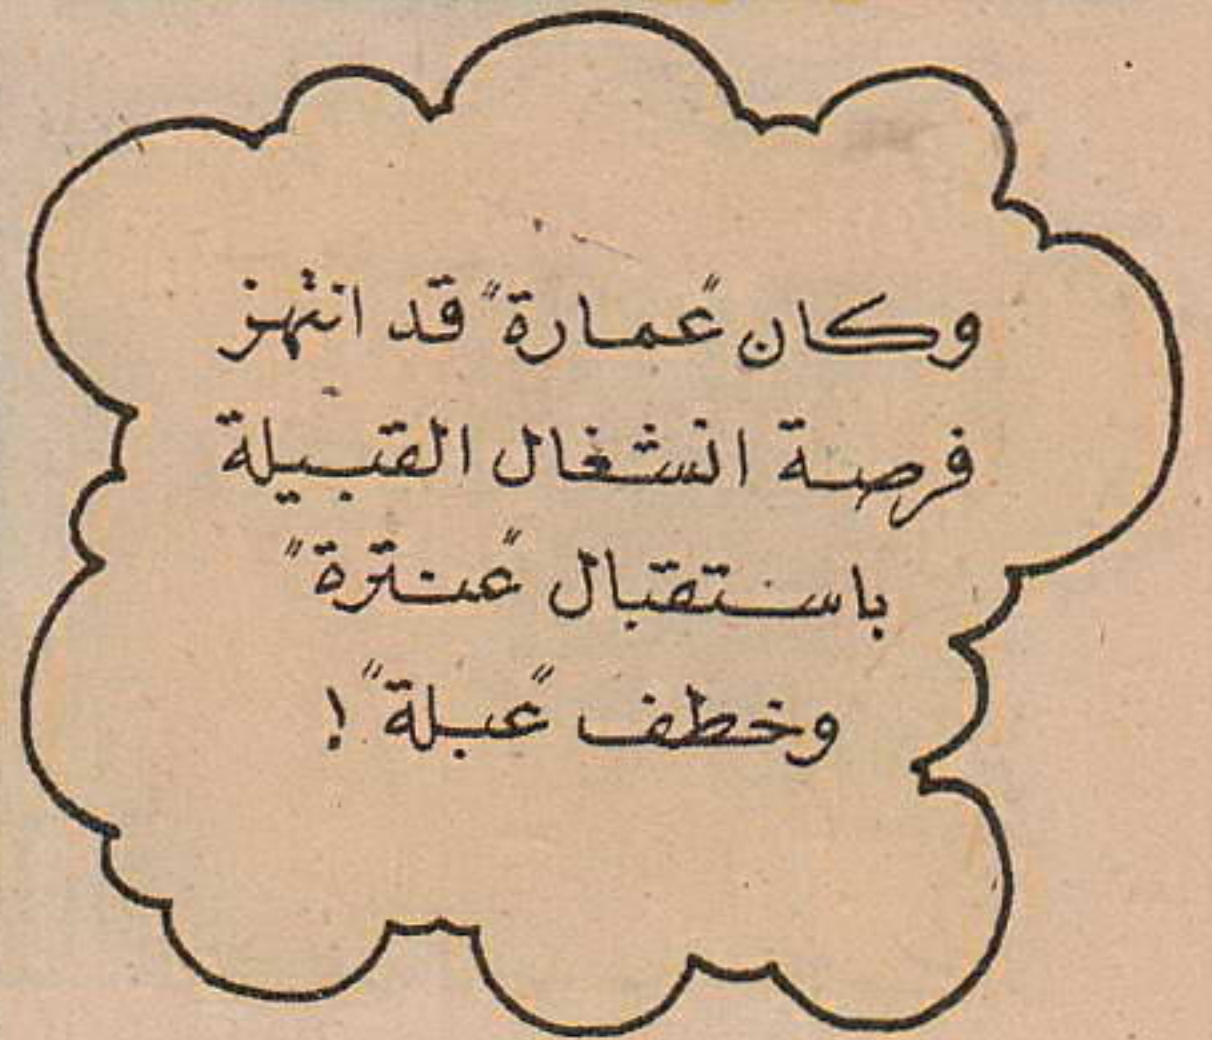 وكان "عمارة" قد انتهز
فرصة انشغال القبيلة
باستقبال "عنترة"
وخطف "عبلة"!